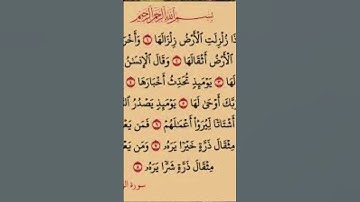 بِسْمِ اللَّهِ الرَّحْمَٰنِ الرَّحِيمِ
ذَا زُلْزِلَتِ الْأَرْضُ زِلْزَالَهَا ۝ وَأَخْرَ
الْأَرْضُ أَثْقَالَهَا ۝ وَقَالَ الْإِنسَٰنُ
لَهَا ۝ يَوْمَئِذٍ تُحَدِّثُ أَخْبَارَهَا ۝
رَبَّكَ أَوْحَىٰ لَهَا ۝ يَوْمَئِذٍ يَصْدُرُ ال
أَشْتَاتًا لِّيُرَوْا أَعْمَٰلَهُمْ ۝ فَمَن يَعْ
مِثْقَالَ ذَرَّةٍ خَيْرًا يَرَهُۥ ۝ وَمَن يَعْ
مِثْقَالَ ذَرَّةٍ شَرًّا يَرَهُۥ ۝
سورة ال